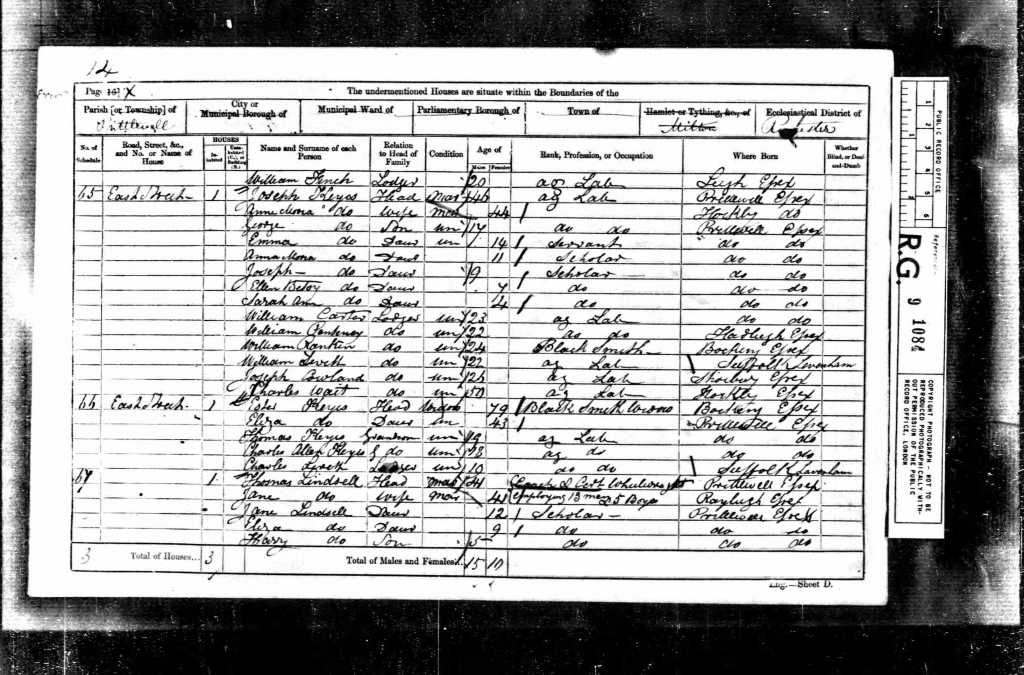 14
Page 16] X
The undermentioned Houses are situate within the Boundaries of the
Parish [or Township] of
Prittlewell
City or Municipal Borough of
Municipal Ward of
Parliamentary Borough of
Town of
Hamlet or Tything, &c., of
Milton
Ecclesiastical District of
Rochester
No. of Schedule
Road, Street, &c., and No. or Name of House
HOUSES
Inhabited
Uninhabited (U.), or Building (B.)
Name and Surname of each Person
Relation to Head of Family
Condition
Age of
Males
Females
Rank, Profession, or Occupation
Where Born
Whether Blind, or Deaf-and-Dumb
William Finch Lodger 20 ag Lab Leigh Essex
65 East Street 1 Joseph Keyes Head Mar 46 ag Lab Prittlewell Essex
Anna Mona do Wife Mar 44 Hockly do
George do Son un 17 do do Prittlewell Essex
Emma do Daur un 14 Servant do do
Anna Mona do Daur 11 Scholar do do
Joseph do Daur 9 Scholar do do
Ellen Betsy do Daur 7 do do do
Sarah Ann do Daur 4 do do do
William Carter Lodger un 23 ag Lab do do
William do un 22 do do Hadleigh Essex
William Rankin do un 24 Black Smith Bocking Essex
William do un 22 ag Lab Suffolk Lavenham
Joseph Bowland do un 26 ag Lab Essex
Charles Wait do un 50 ag Lab Hockly Essex
66 East Street 1 Ester Keyes Head Widow 79 Black Smith Widow Bocking Essex
Eliza do Daur un 43 Prittlewell Essex
Thomas Keyes Grandson un 19 ag Lab do do
Charles Allen Keyes G do un 18 ag do do do
Charles Lodger un 10 do do Suffolk Lavenham
67 1 Thomas Lindsell Head Mar 44 Coach & Cart Wheelwright Prittlewell Essex
Jane do Wife Mar 41 employing 13 men & 5 Boys Rayleigh Essex
Jane Lindsell Daur 12 Scholar Prittlewell Essex
Eliza do Daur 9 do do do
Harry do Son 5 do do do
3 Total of Houses... 3 Total of Males and Females... 15 10
Eng.—Sheet D.
PUBLIC RECORD OFFICE
1 2 3 4 5 6
Reference:-
R.G. 9 1084
COPYRIGHT PHOTOGRAPH - NOT TO BE REPRODUCED PHOTOGRAPHICALLY WITHOUT PERMISSION OF THE PUBLIC RECORD OFFICE, LONDON